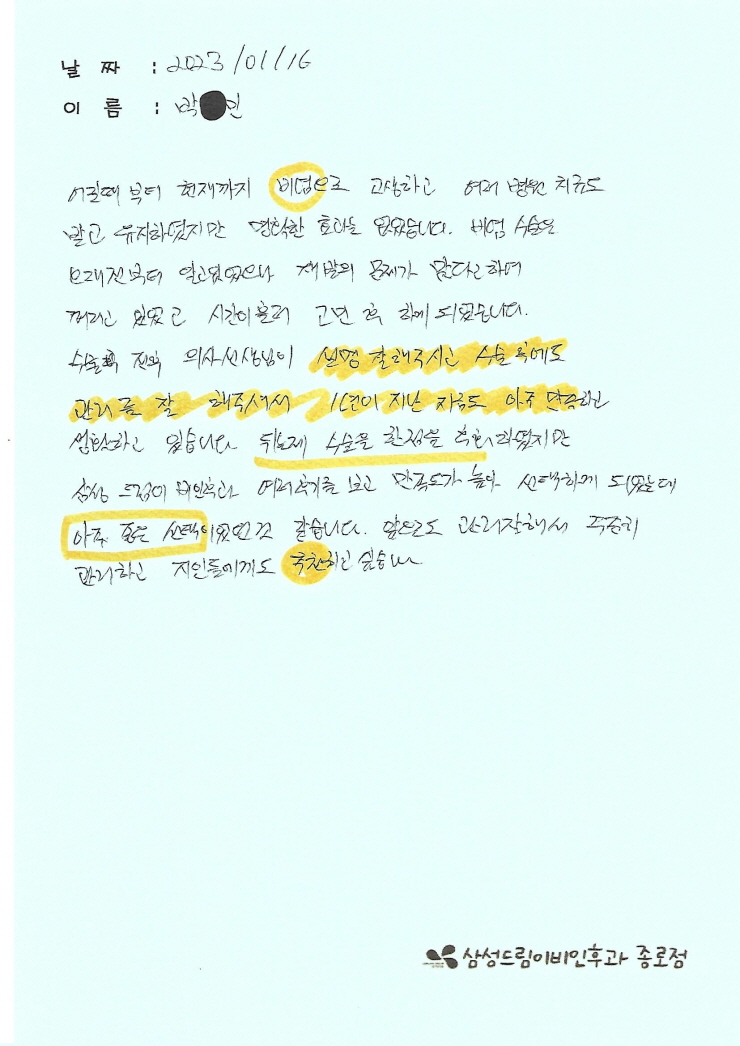 날 짜 : 2023/01/16
이 름 : 박 인
어릴때 부터 현재까지 비염으로 고생하고 여러 병원 치료도
받고 유지하였지만 명확한 효과는 없었습니다. 비염 수술은
오래전부터 알고있었으나 재발의 문제가 많다고하여
꺼리고 있었고 시간이흘러 고민 후 하게 되었습니다.
수술 전후 의사선생님이 설명 잘해주시고 수술 후에도
관리를 잘 해주셔서 1년이 지난 지금도 아주 만족하고
생활하고 있습니다 뒤늦게 수술을 한점을 후회하였지만
삼성 드림이비인후과 여러후기를 보고 만족도가 높아 선택하게 되었는데
아주 좋은 선택이었던것 같습니다. 앞으로도 관리잘해서 꾸준히
관리하고 지인들에게도 추천하고 싶습니다.
삼성드림이비인후과 종로점